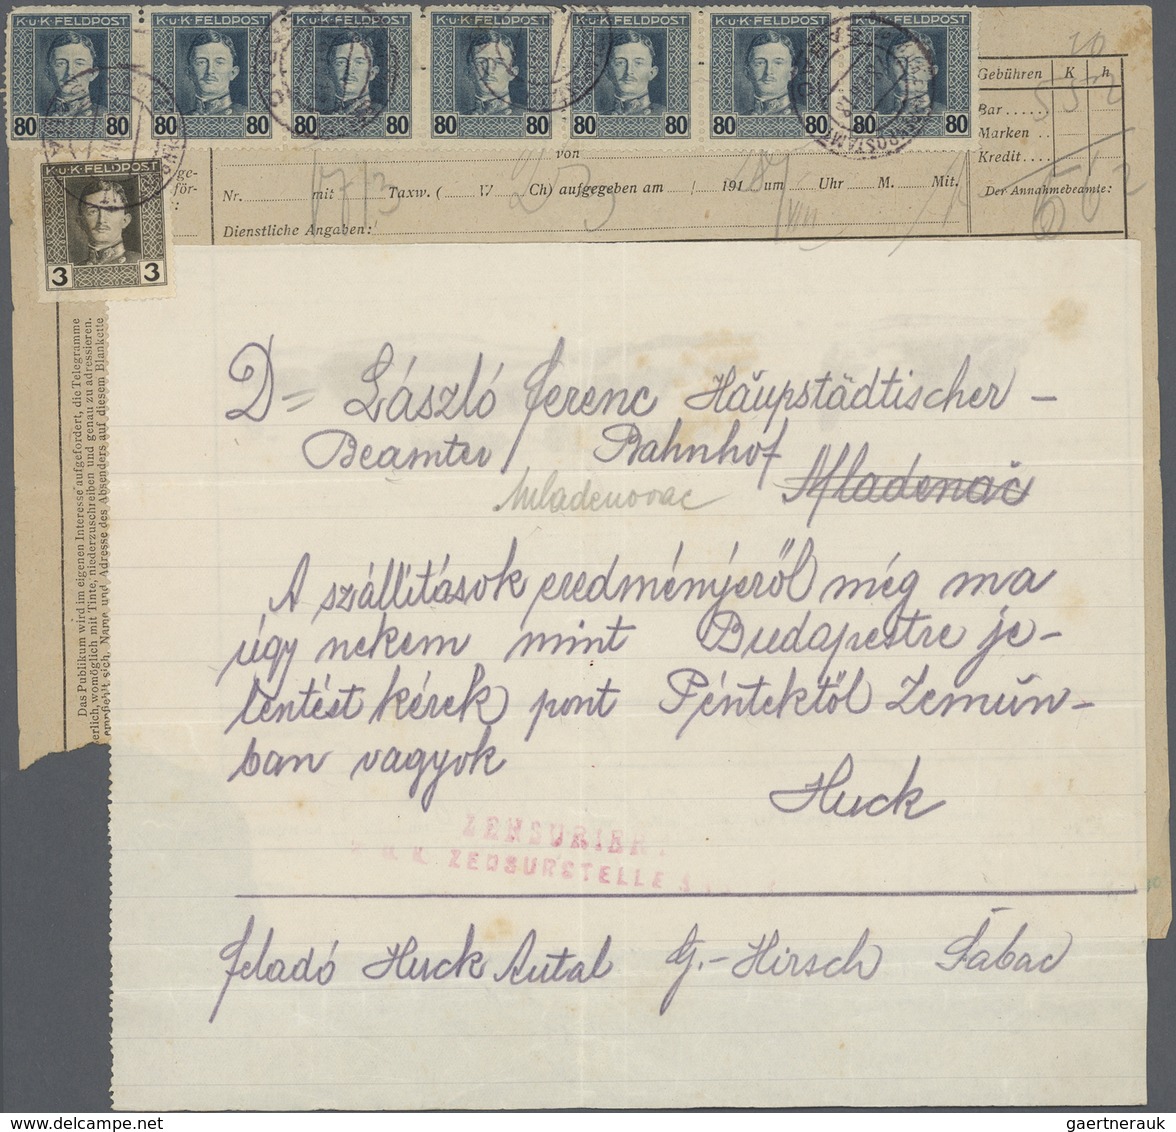 K.u.K. FELDPOST K.u.K. FELDPOST K.u.K. FELDPOST K.u.K. FELDPOST K.u.K. FELDPOST K.u.K. FELDPOST K.u.K. FELDPOST
80 80 80 80 80 80 80 80 80 80 80 80 80 80
K.u.K. FELDPOST
3 3
Gebühren K h
Bar
Marken
Kredit
Der Annahmebeamte:
von
Nr. mit Taxw. ( W Ch) aufgegeben am / 191 8 um Uhr M. Mit.
Dienstliche Angaben:
ge-
för-
:
Das Publikum wird im eigenen Interesse aufgefordert, die Telegramme
erlich, womöglich mit Tinte, niederzuschreiben und genau zu adressieren.
empfiehlt sich, Name und Adresse des Absenders auf diesem Blankette
D= László Ferenc Häupstädtischer-
Beamter Bahnhof Mladenač
Mladenovac
A szállitások eredményéről még ma
úgy nekem mint Budapestre je-
lentést kérek pont Péntektől Zemün-
ban vagyok
Huck
ZENSURIER
K. ZENSURSTELLE
feladó Huck Antal G.-Hirsch Sábac
gaertnerauk
gaertnerauk@delcampe.net